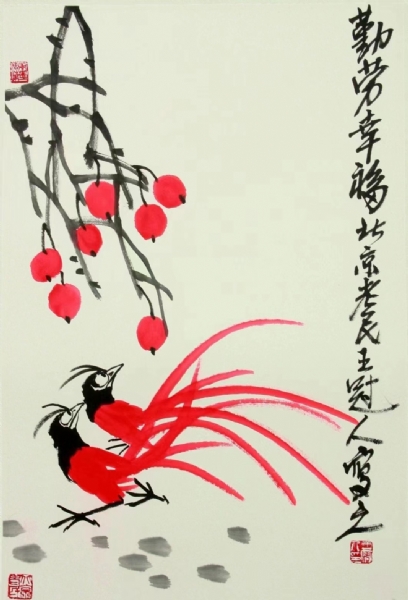 勤劳幸福北京老民王冠人写之